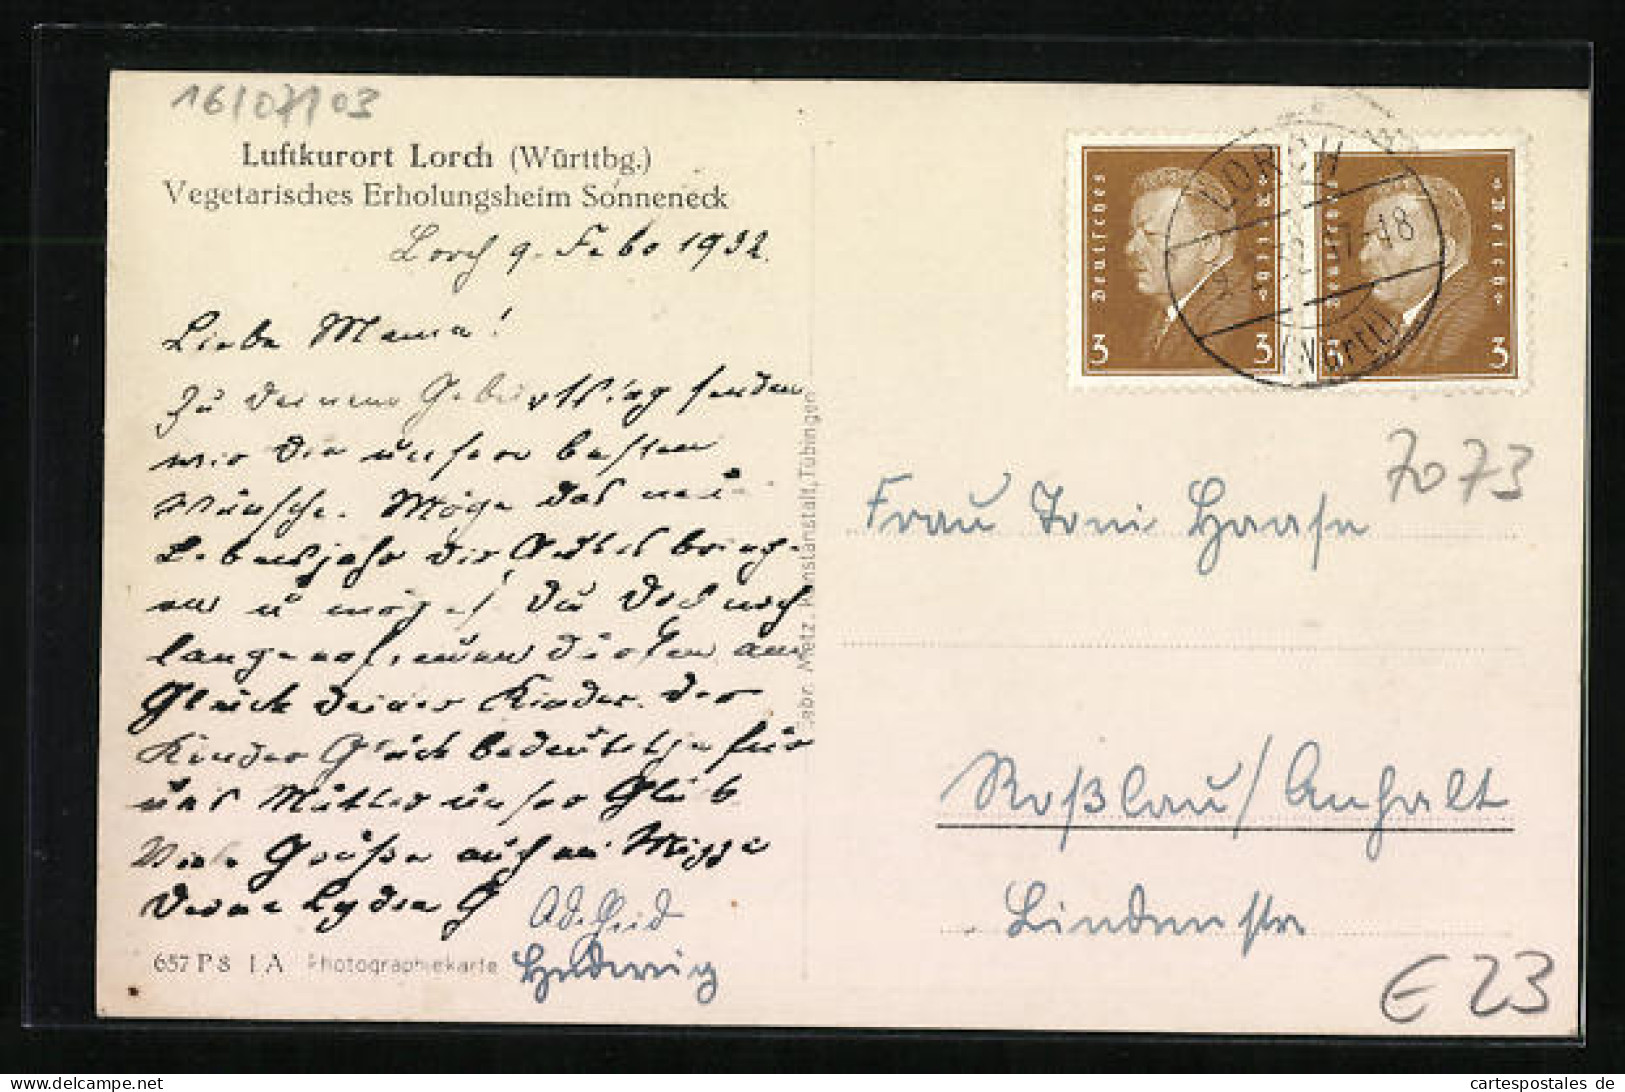 16/07/03
Luftkurort Lorch (Württbg.)
Vegetarisches Erholungsheim Sonneneck
Lorch 9. Febr 1932.
Liebe Mama!
Zu deinem Geburtstag senden
wir dir unsere besten
Wünsche. Möge das neue
Lebensjahr dir Gutes bring-
en u mögest Du doch noch
lange
Glück deiner Kinder. Der
Kinder Glück bedeutet ja für
uns Mütter unser Glück
Viele Grüße auch an
Deine Lydia G Adelheid
Hedwig
657 P 8 I A Photographiekarte
Gebr. Metz, Kunstanstalt, Tübingen
Deutsches Reich
3 3
Deutsches Reich
3 3
LORCH
32 17-18
(Württ)
7073
Frau Toni Haase
Roßlau/Anhalt
Lindenstr
E23
cartespostales de